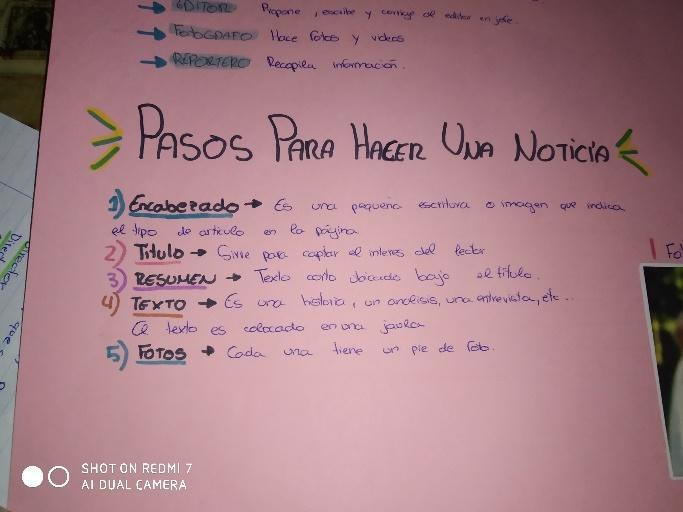 EDITOR Propone, escribe y corrige al editor en jefe.
FOTÓGRAFO Hace fotos y videos
REPORTERO Recopila información.
PASOS PARA HACER UNA NOTICIA
1) Encabezado → Es una pequeña escritura o imagen que indica
el tipo de articulo en la página
2) Titulo → Sirve para captar el interes del lector
3) RESUMEN → Texto corto ubicado bajo el título.
4) TEXTO → Es una historia, un análisis, una entrevista, etc...
El texto es colocado en una jaula
5) FOTOS → Cada una tiene un pie de foto.
SHOT ON REDMI 7
AI DUAL CAMERA